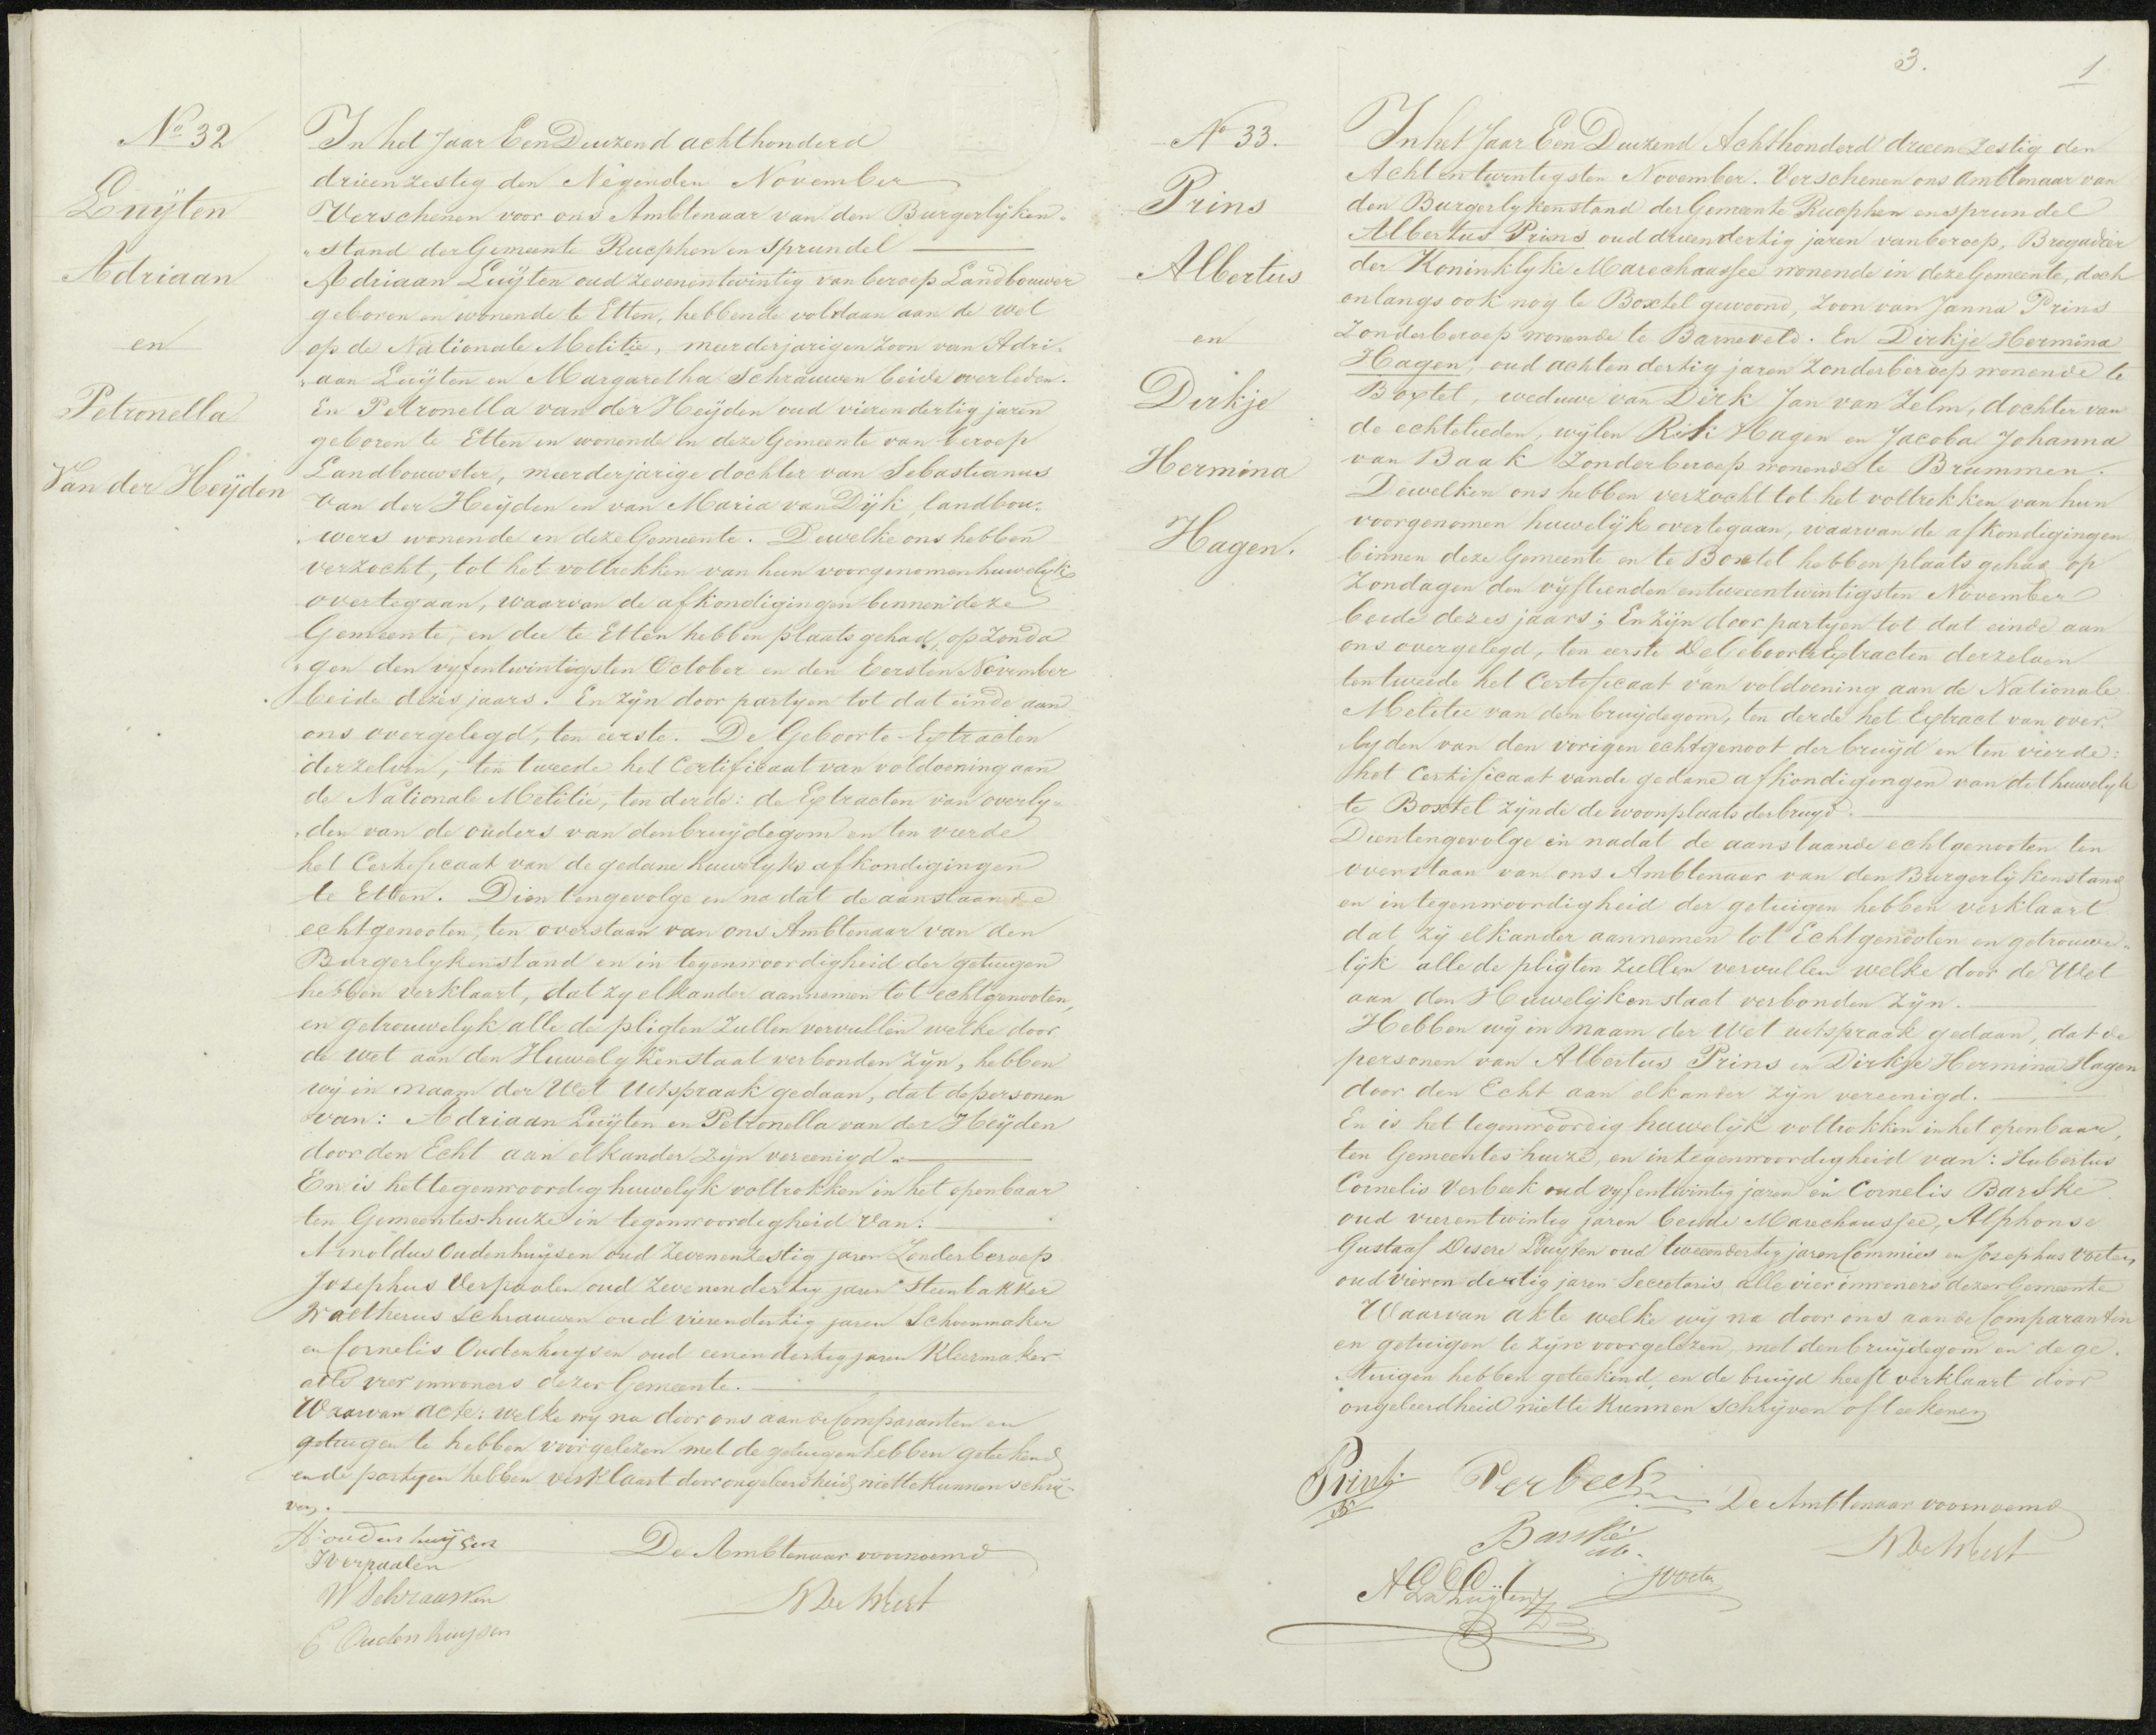 No 32
Luÿten
Adriaan
en
Petronella
Van der Heÿden
In het Jaar Een Duizend achthonderd
drieenzestig den Negenden November
Verschenen voor ons Ambtenaar van den Burgerlÿken-
"stand der Gemeente Rucphen en Sprundel
Adriaan Luÿten oud zevenentwintig van beroep Landbouwer
geboren en wonende te Etten, hebbende voldaan aan de wet
op de Nationale Melitie, meerderjarigen zoon van Adri-
"aan Luÿten en Margaretha Schrauwen beide overleden.
En Petronella van der Heÿden oud vierendertig jaren
geboren te Etten en wonende in deze Gemeente van beroep
Landbouwster, meerderjarige dochter van Sebastianus
Van der Heÿden en van Maria van Dÿk landbou-
"wers wonende in deze Gemeente. Dewelke ons hebben
verzocht, tot het voltrekken van hun voorgenomen huwelyk
overtegaan, waarvan de afkondigingen binnen deze
Gemeente, en die te Etten hebben plaats gehad, op Zonda
"gen den vyfentwintigsten October en den Eersten November
beide dezes jaars. En zÿn door partyen tot dat einde aan
ons overgelegd, ten eerste. De Geboorte-Extracten
derzelven, ten tweede het Certificaat van voldoening aan
de Nationale Melitie, ten derde: de Extracten van overly-
"den van de ouders van den bruÿdegom en ten vierde
het Certificaat van de gedane huwelyks afkondigingen
te Etten. Dientengevolge en nadat de aanstaande
echtgenooten, ten overstaan van ons Ambtenaar van den
Burgerlykenstand en in tegenwoordigheid der getuigen
hebben verklaart, dat zy elkander aannemen tot echtgenooten,
en getrouwelyk alle de pligten zullen vervullen welke door
de wet aan den Huwelykenstaat verbonden zÿn, hebben
wÿ in naam der Wet uitspraak gedaan, dat de personen
van: Adriaan Luÿten en Petronella van der Heÿden
door den Echt aan elkander zÿn vereenigd.
En is het tegenwoordig huwelyk voltrokken in het openbaar
ten Gemeentes-huize in tegenwoordigheid van:
Arnoldus Oudenhuÿsen oud zevenenzestig jaren Zonder beroep
Josephus Verpaalen oud zevenendertig jaren Steenbakker
Waltherus Schrauwen oud vierendertig jaren Schoenmaker
en Cornelis Oudenhuysen oud eenendertig jaren Kleermaker
alle vier inwoners dezer Gemeente.
Waarvan acte: welke wy na door ons aan de Comparanten en
getuigen te hebben voorgelezen met de getuigen hebben geteekend
en de partyen hebben verklaart door ongeleerdheid niet te kunnen schrÿ-
ven.
A: oudenhuÿsen
J Verpaalen
W Schraauwen
C Oudenhuysen
De Ambtenaar voornoemd
3.
1
No 33.
Prins
Albertus
en
Dirkje
Hermina
Hagen.
In het Jaar Een Duizend Achthonderd drieenzestig den
Achtentwintigsten November. Verschenen ons Ambtenaar van
den Burgerlykenstand der Gemeente Rucphen en Sprundel
Albertus Prins oud drieendertig jaren van beroep, Bregadier
der Koninklyke Marechaussee wonende in deze Gemeente, doch
onlangs ook nog te Boxtel gewoond, zoon van Janna Prins
Zonder beroep wonende te Barneveld. En Dirkje Hermina
Hagen, oud achtendertig jaren Zonder beroep wonende te
Boxtel, weduwe van Dirk Jan van Zelm, dochter van
de echtelieden, wÿlen Hagen en Jacoba Johanna
van Baak Zonder beroep wonende te Brummen.
Dewelken ons hebben verzocht tot het voltrekken van hun
voorgenomen huwelÿk overtegaan, waarvan de afkondigingen
binnen deze Gemeente en te Boxtel hebben plaats gehad op
Zondagen den vÿftienden en tweeentwintigsten November
beide dezes jaars; En zÿn door partyen tot dat einde aan
ons overgelegd, ten eerste De Geboorte Extracten derzelven
ten tweede het Certificaat van voldoening aan de Nationale
Melitie van den bruÿdegom, ten derde het Extract van over-
"lyden van den vorigen echtgenoot der bruÿd en ten vierde:
het Certificaat van de gedane afkondigingen van dit huwelyk
te Boxtel zÿnde de woonplaats der bruyd.
Dientengevolge en nadat de aanstaande echtgenooten ten
overstaan van ons Ambtenaar van den Burgerlykenstand
en in tegenwoordigheid der getuigen hebben verklaart
dat zÿ elkander aannemen tot Echtgenooten en getrouwe-
lÿk alle de pligten zullen vervullen welke door de Wet
aan den Huwelÿkenstaat verbonden zÿn.
Hebben wÿ in naam der Wet uitspraak gedaan, dat de
personen van Albertus Prins en Dirkje Hermina Hagen
door den Echt aan elkander zÿn vereenigd.
En is het tegenwoordig huwelÿk voltrokken in het openbaar,
ten Gemeentes huize, en in tegenwoordigheid van: Hubertus
Cornelis Verbeek oud vyfentwintig jaren en Cornelis Barske
oud vierentwintig jaren beide Marechaussee, Alphonse
Gustaaf Desere Luyten oud tweeendertig jaren Commies en Josephus Voeten,
oud vierendertig jaren Secretaris alle vier inwoners dezer Gemeente
Waarvan akte welke wÿ na door ons aan de Comparanten
en getuigen te zÿn voorgelezen, met den bruÿdegom en de ge-
"tuigen hebben geteekend, en de bruÿd heeft verklaart door
ongeleerdheid niet te kunnen Schrÿven of teekenen
Prins
Verbeek
Barske
De Ambtenaar voornoemd